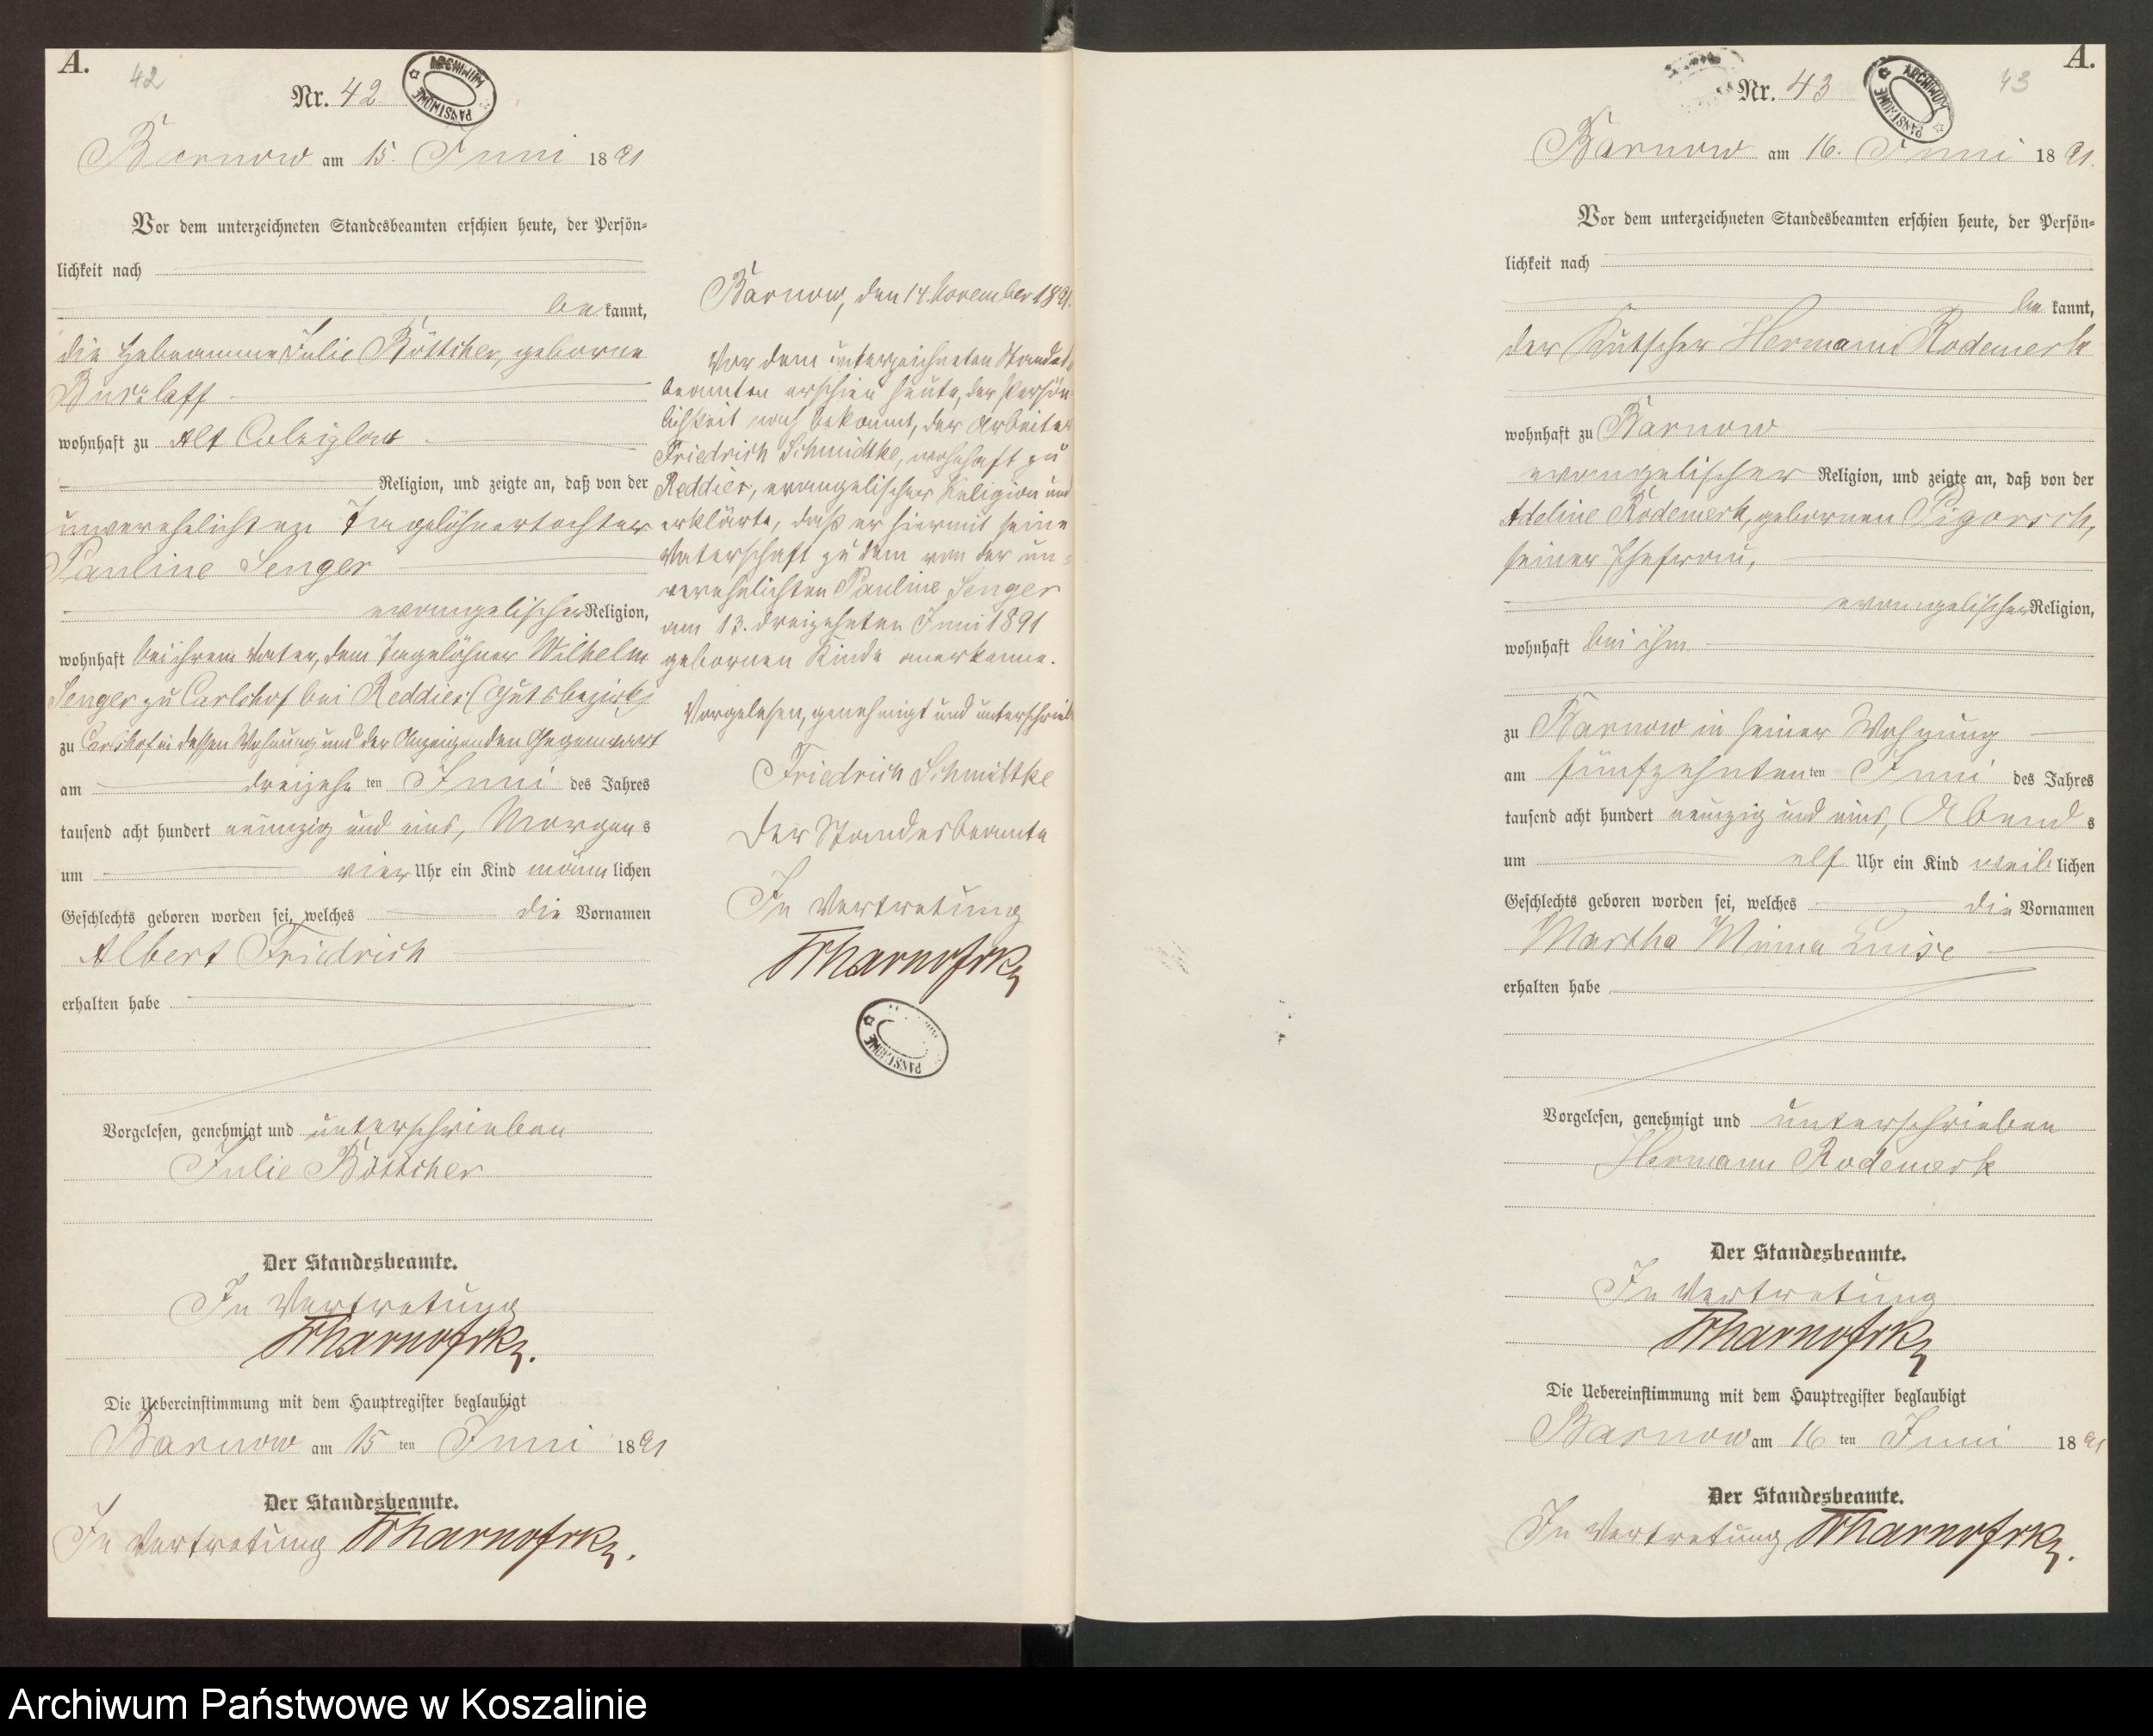 A.
42
Nr. 42
ARCHIWUM PAŃSTWOWE
Barnow am 15. Juni 1891
Vor dem unterzeichneten Standesbeamten erschien heute, der Persön-
lichkeit nach
be kannt,
die Hebeamme Julie Böttcher, geborne
Buszlaff
wohnhaft zu Alt Colziglow
Religion, und zeigte an, daß von der
unverehelichten Tagelöhnertochter
Pauline Senger
evangelischer Religion,
wohnhaft bei ihrem Vater, dem Tagelöhner Wilhelm
Senger zu Carlshof bei Reddies (Gutsbezirk)
zu Carlshof in dessen Wohnung und der Anzeigenden Gegenwart
am dreizehn ten Juni des Jahres
tausend acht hundert neunzig und eins, Morgens
um vier Uhr ein Kind männ lichen
Geschlechts geboren worden sei, welches die Vornamen
Albert Friedrich
erhalten habe
Vorgelesen, genehmigt und unterschrieben
Julie Böttcher
Der Standesbeamte.
In Vertretung
Die Uebereinstimmung mit dem Hauptregister beglaubigt
Barnow am 15 ten Juni 1891
Der Standesbeamte.
In Vertretung
Barnow, den 14. November 1891.
Vor dem unterzeichneten Standes-
beamten erschien heute, der Persön-
lichkeit nach bekannt, der Arbeiter
Friedrich Schmidtke, wohnhaft zu
Reddies, evangelischer Religion und
erklärte, daß er hiermit seine
Vaterschaft zu dem von der un-
verehelichten Pauline Senger
am 13. dreizehnten Juni 1891
gebornen Kinde anerkenne.
Vorgelesen, genehmigt und unterschrieb
Friedrich Schmittke
Der Standesbeamte
In Vertretung
PAŃSTWOWE
A.
43
Nr. 43
ARCHIWUM PAŃSTWOWE
Barnow am 16. Juni 1891.
Vor dem unterzeichneten Standesbeamten erschien heute, der Persön-
lichkeit nach
be kannt,
der Kutscher Hermann Rodemerk
wohnhaft zu Barnow
evangelischer Religion, und zeigte an, daß von der
Adeline Rodemerk, gebornen Pigorsch,
seiner Ehefrau,
evangelischer Religion,
wohnhaft bei ihm
zu Barnow in seiner Wohnung
am fünfzehnten ten Juni des Jahres
tausend acht hundert neunzig und eins, Abends
um elf Uhr ein Kind weib lichen
Geschlechts geboren worden sei, welches die Vornamen
Martha Minna Luise
erhalten habe
Vorgelesen, genehmigt und unterschrieben
Hermann Rodemerk
Der Standesbeamte.
In Vertretung
Die Uebereinstimmung mit dem Hauptregister beglaubigt
Barnow am 16 ten Juni 1891
Der Standesbeamte.
In Vertretung
Archiwum Państwowe w Koszalinie